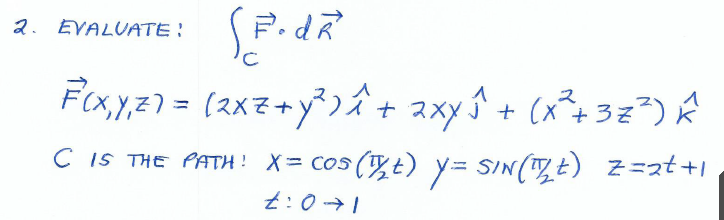 2. EVALUATE: ∫_C F⃗ · dR⃗
F⃗(x,y,z) = (2xz + y²) î + 2xy ĵ + (x² + 3z²) k̂
C IS THE PATH: x = cos(π/2 t) y = SIN(π/2 t) z = 2t+1
t: 0 → 1